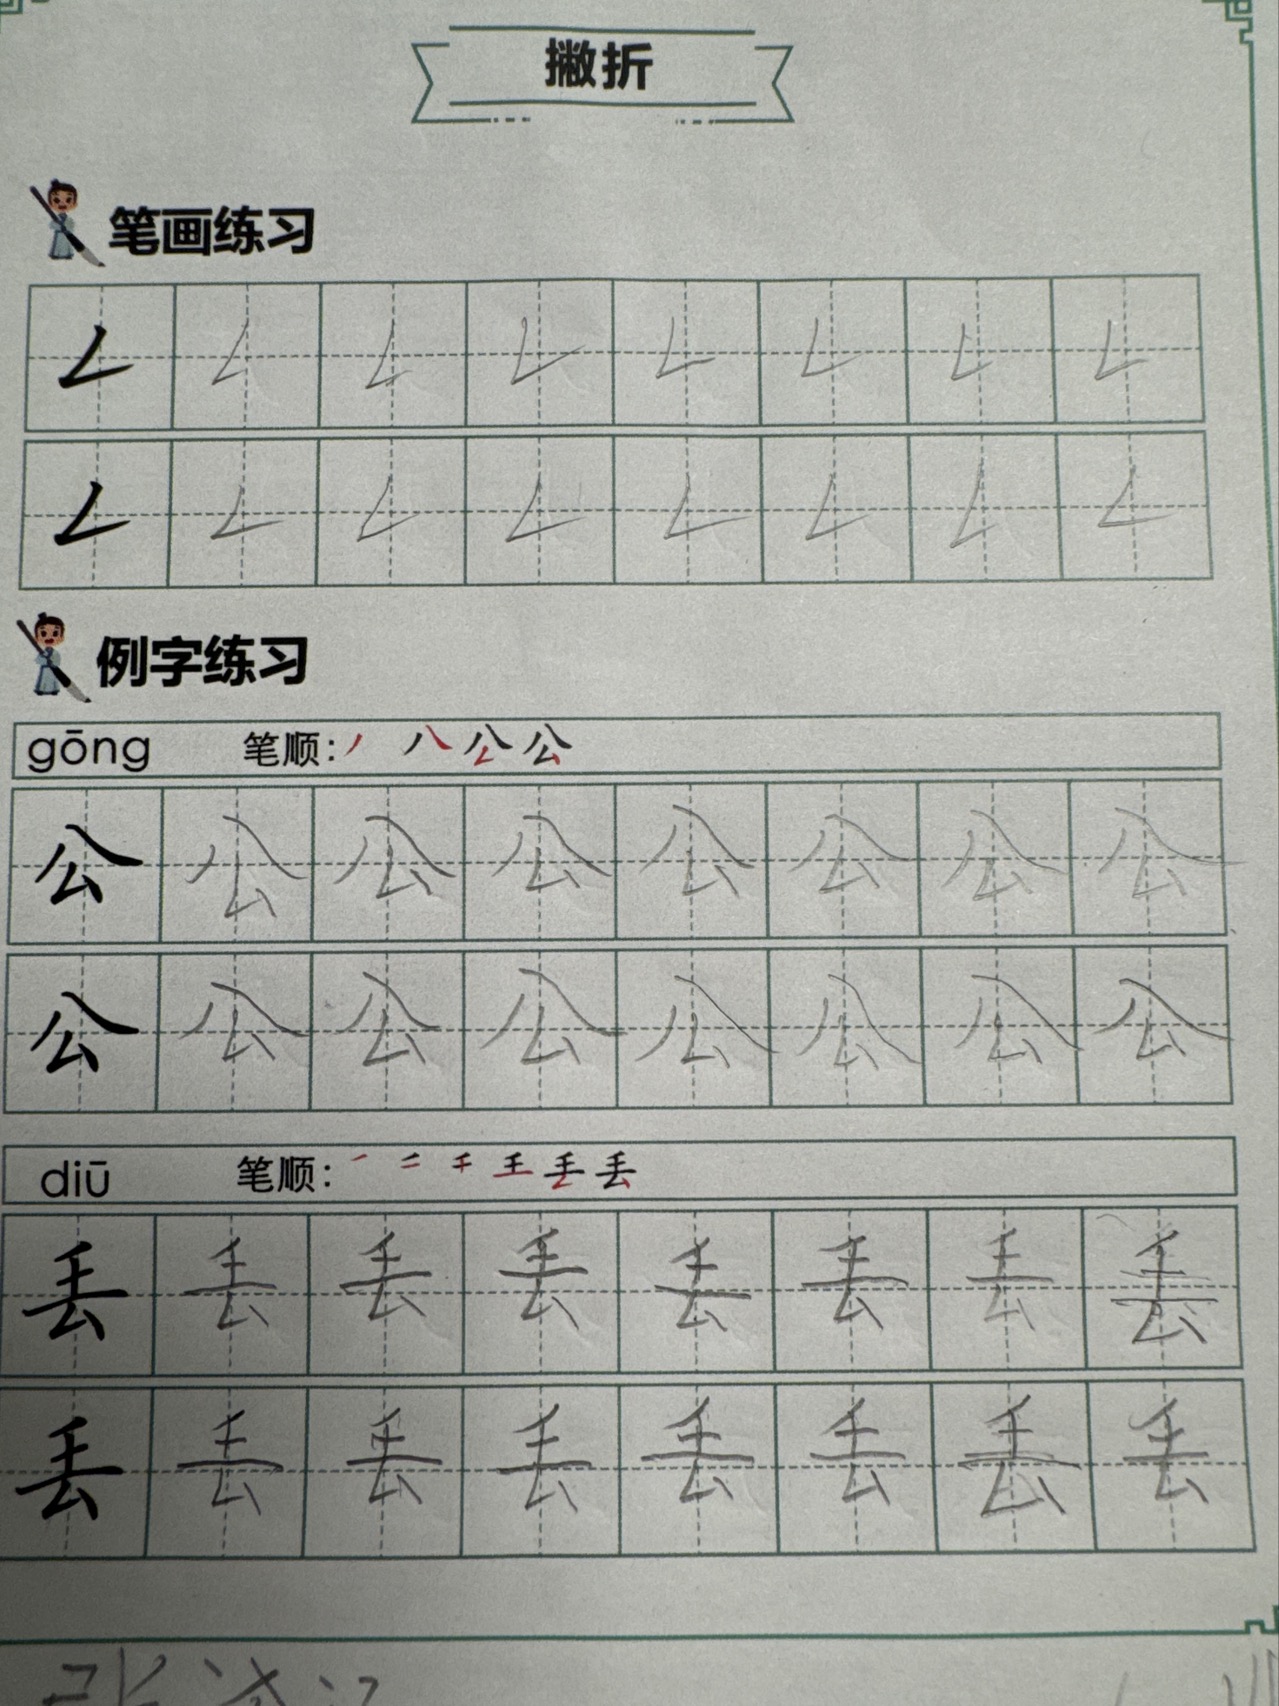 撇折
笔画练习
𠃋 𠃋 𠃋 𠃋 𠃋 𠃋 𠃋 𠃋
𠃋 𠃋 𠃋 𠃋 𠃋 𠃋 𠃋 𠃋
例字练习
gōng 笔顺: 丿 八 公 公
公 公 公 公 公 公 公 公
公 公 公 公 公 公 公 公
diū 笔顺: 丢
丢 丢 丢 丢 丢 丢 丢 丢
丢 丢 丢 丢 丢 丢 丢 丢